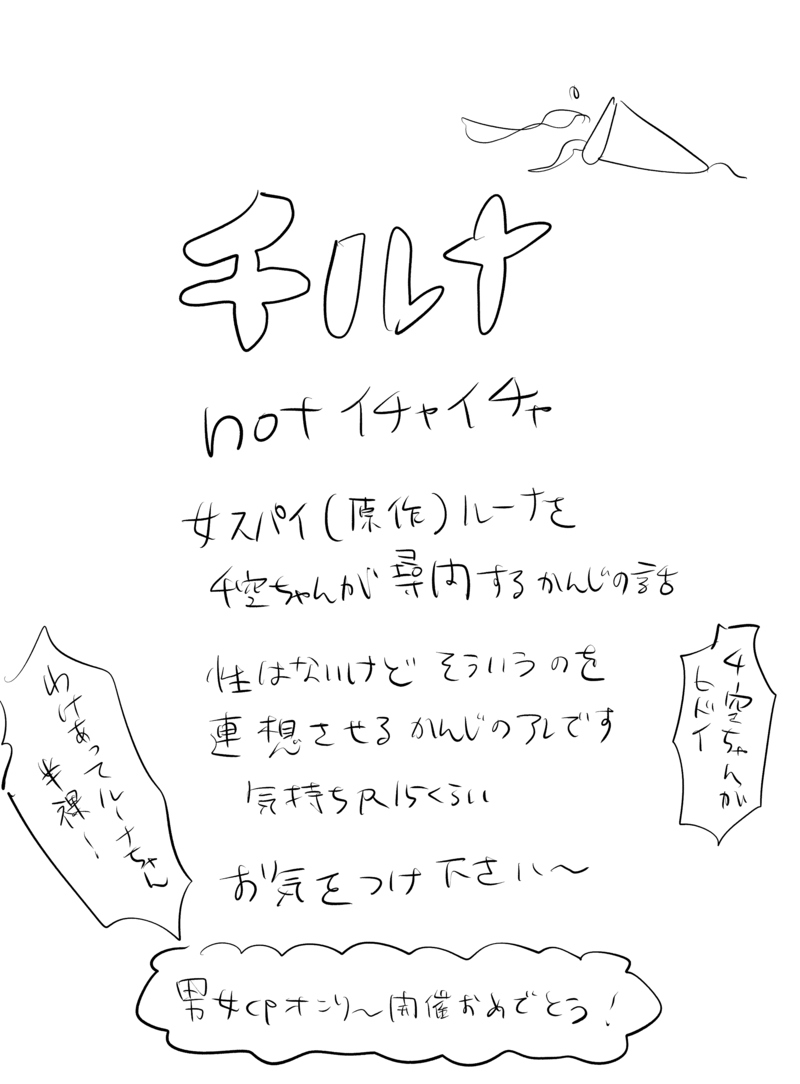 チルナ
not イチャイチャ
女スパイ(原作)ルーナを
千空ちゃんが尋問するかんじの話
性はないけど そういうのを
連想させる かんじのアレです
気持ちR15くらい
お気をつけ下さい〜
千空ちゃんが
ヒドイ
わけあってルーナちゃん
半裸!
男女CPオンリ〜開催おめでとう!